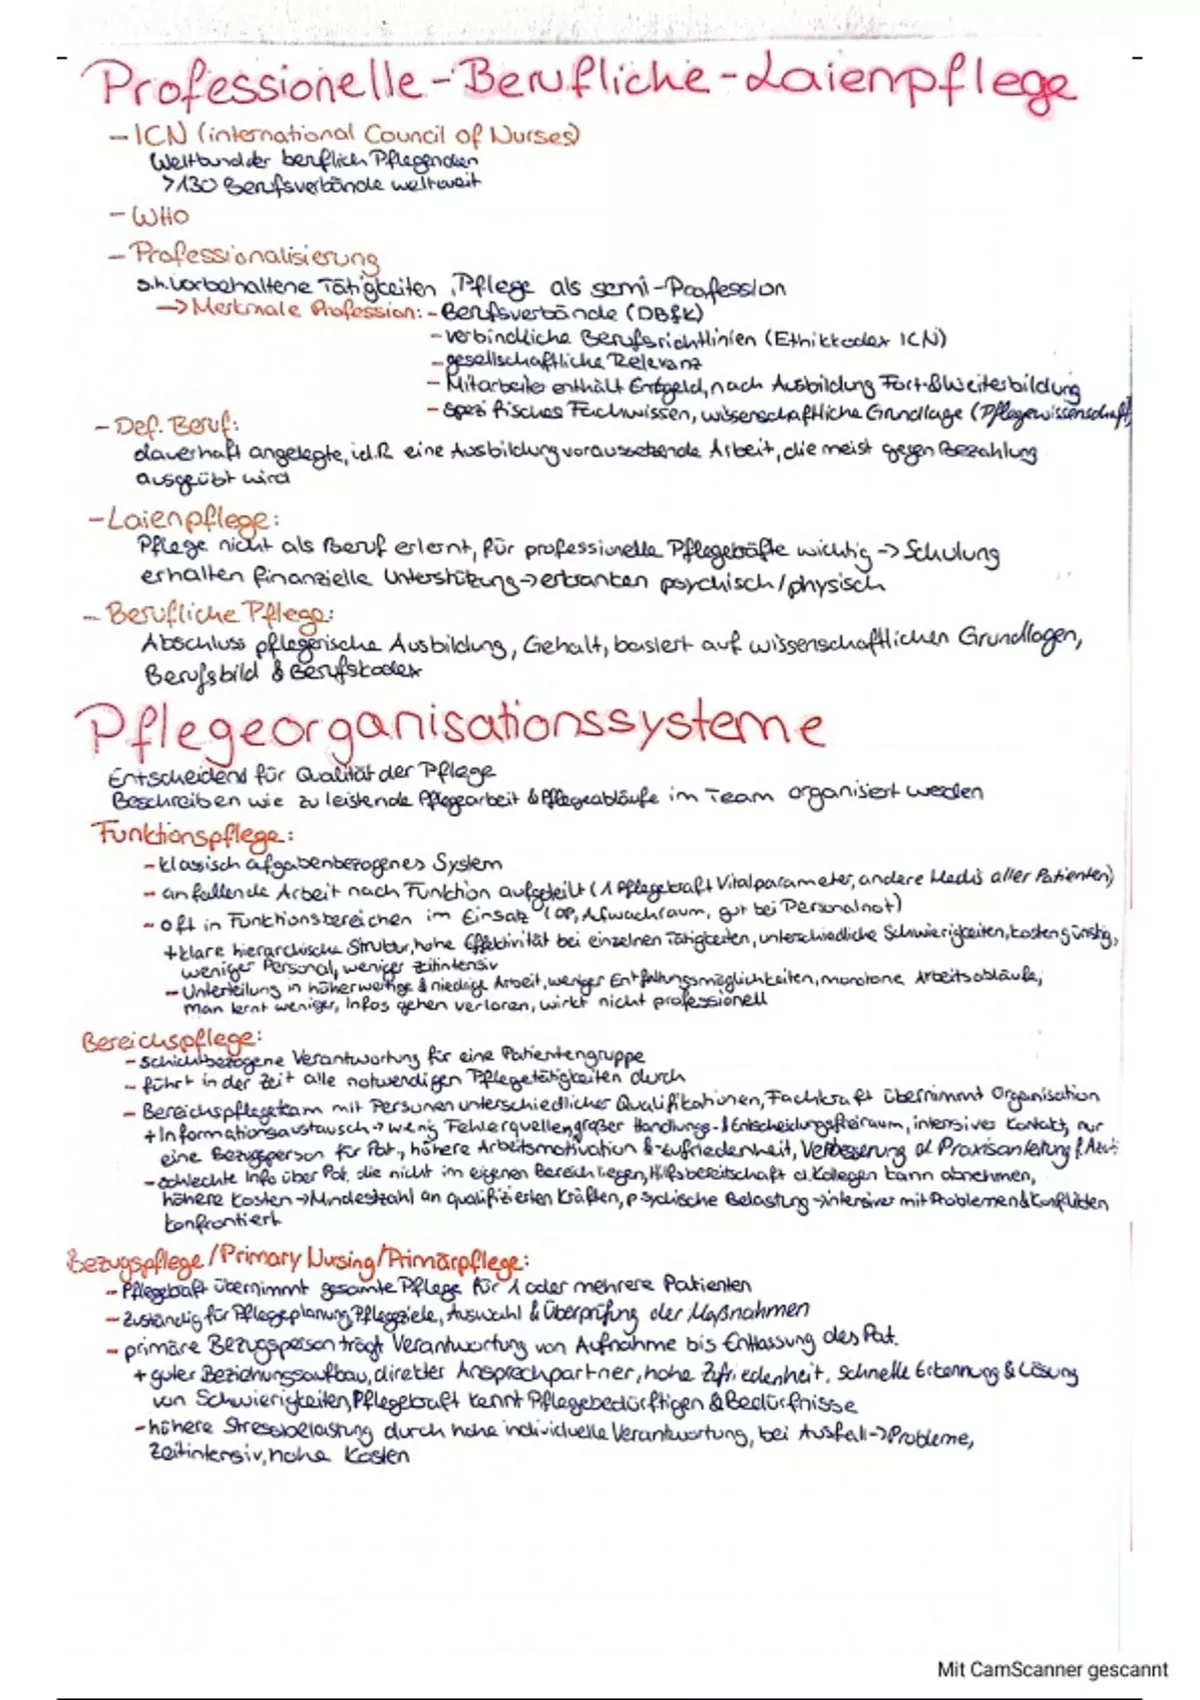 Professionelle-Berufliche-Laienpflege
- ICN (international Council of Nurses)
Weltbund der beruflich Pflegenden
>130 Berufsverbände weltweit
- WHO
- Professionalisierung
s.h. Vorbehaltene Tätigkeiten, Pflege als semi-Profession
-> Merkmale Profession: - Berufsverbände (DBfK)
- verbindliche Berufsrichtlinien (Ethikkodex ICN)
- gesellschaftliche Relevanz
- Mitarbeiter enthält Entgeld, nach Ausbildung Fort-&Weiterbildung
- spezifisches Fachwissen, wissenschaftliche Grundlage (Pflegewissenschaft)
- Def. Beruf:
dauerhaft angelegte, i.d.R eine Ausbildung voraussetzende Arbeit, die meist gegen Bezahlung
ausgeübt wird
- Laienpflege:
Pflege nicht als Beruf erlernt, für professionelle Pflegekräfte wichtig -> Schulung
erhalten finanzielle Unterstützung -> erkranken psychisch/physisch
- Berufliche Pflege:
Abschluss pflegerische Ausbildung, Gehalt, basiert auf wissenschaftlichen Grundlagen,
Berufsbild & Berufskodex
Pflegeorganisationssysteme
Entscheidend für Qualität der Pflege
Beschreiben wie zu leistende Pflegearbeit & Pflegeabläufe im Team organisiert werden
Funktionspflege:
- klassisch afgabenbezogenes System
- anfallende Arbeit nach Funktion aufgeteilt (1 Pflegekraft Vitalparameter, andere Medis aller Patienten)
- oft in Funktionsbereichen im Einsatz (OP, Afwachraum, gut bei Personalnot)
+ klare hierarchische Struktur, hohe Effektivität bei einzelnen Tätigkeiten, unterschiedliche Schwierigkeiten, kostengünstig,
weniger Personal, weniger zeitintensiv
- Unterteilung in höherwertige & niedrige Arbeit, weniger Entfaltungsmöglichkeiten, monotone Arbeitsabläufe,
man lernt weniger, Infos gehen verloren, wirkt nicht professionell
Bereichspflege:
- schichtbezogene Verantwortung für eine Patientengruppe
- führt in der Zeit alle notwendigen Pflegetätigkeiten durch
- Bereichspflegeteam mit Personen unterschiedlicher Qualifikationen, Fachkraft übernimmt Organisation
+ Informationsaustausch -> wenig Fehlerquellen, großer Handlungs- & Entscheidungsfreiraum, intensiver Kontakt, nur
eine Bezugsperson für Pat., höhere Arbeitsmotivation & -zufriedenheit, Verbesserung d. Praxisanleitung f.
- schlechte Info über Pat. die nicht im eigenen Bereich liegen, Hilfsbereitschaft d. Kollegen kann abnehmen,
höhere Kosten -> Mindestzahl an qualifizierten Kräften, psychische Belastung -> intensiver mit Problemen & Konflikten
konfrontiert
Bezugspflege/Primary Nursing/Primärpflege:
- Pflegekraft übernimmt gesamte Pflege für 1 oder mehrere Patienten
- Zuständig für Pflegeplanung, Pflegeziele, Auswahl & Überprüfung der Maßnahmen
- primäre Bezugsperson trägt Verantwortung von Aufnahme bis Entlassung des Pat.
+ guter Beziehungsaufbau, direkter Ansprechpartner, hohe Zufriedenheit, schnelle Erkennung & Lösung
von Schwierigkeiten, Pflegekraft kennt Pflegebedürftigen & Bedürfnisse
- höhere Stressbelastung durch hohe individuelle Verantwortung, bei Ausfall -> Probleme,
zeitintensiv, hohe Kosten
Mit CamScanner gescannt